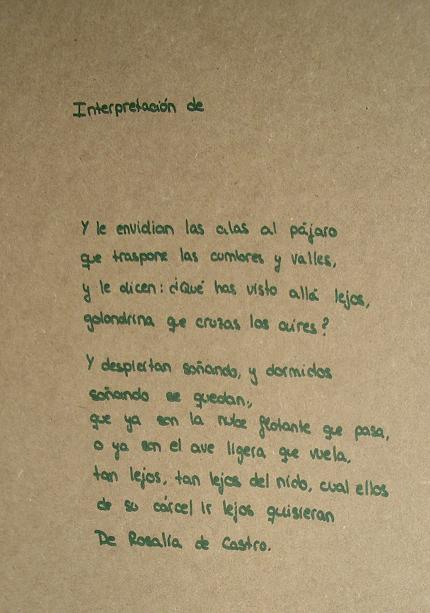 Interpretación de
Y le envidian las alas al pájaro
que traspone las cumbres y valles,
y le dicen: ¿Qué has visto allá lejos,
golondrina que cruzas los aires?
Y despiertan soñando, y dormidos
soñando se quedan,
que ya son la nube flotante que pasa,
o ya son el ave ligera que vuela,
tan lejos, tan lejos del nido, cual ellos
de su cárcel ir lejos quisieran
De Rosalía de Castro.